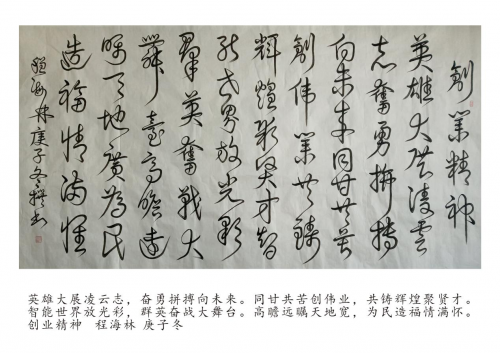 創業精神
英雄大展凌雲
志奮勇拼搏
向未来同甘共苦
創伟業共鑄
輝煌聚賢才智
能世界放光彩
羣英奮戰大
舞臺高瞻遠
矚天地廣為民
造福情满懷
程海林庚子冬撰书
英雄大展凌云志，奋勇拼搏向未来。同甘共苦创伟业，共铸辉煌聚贤才。
智能世界放光彩，群英奋战大舞台。高瞻远瞩天地宽，为民造福情满怀。
创业精神 程海林 庚子冬